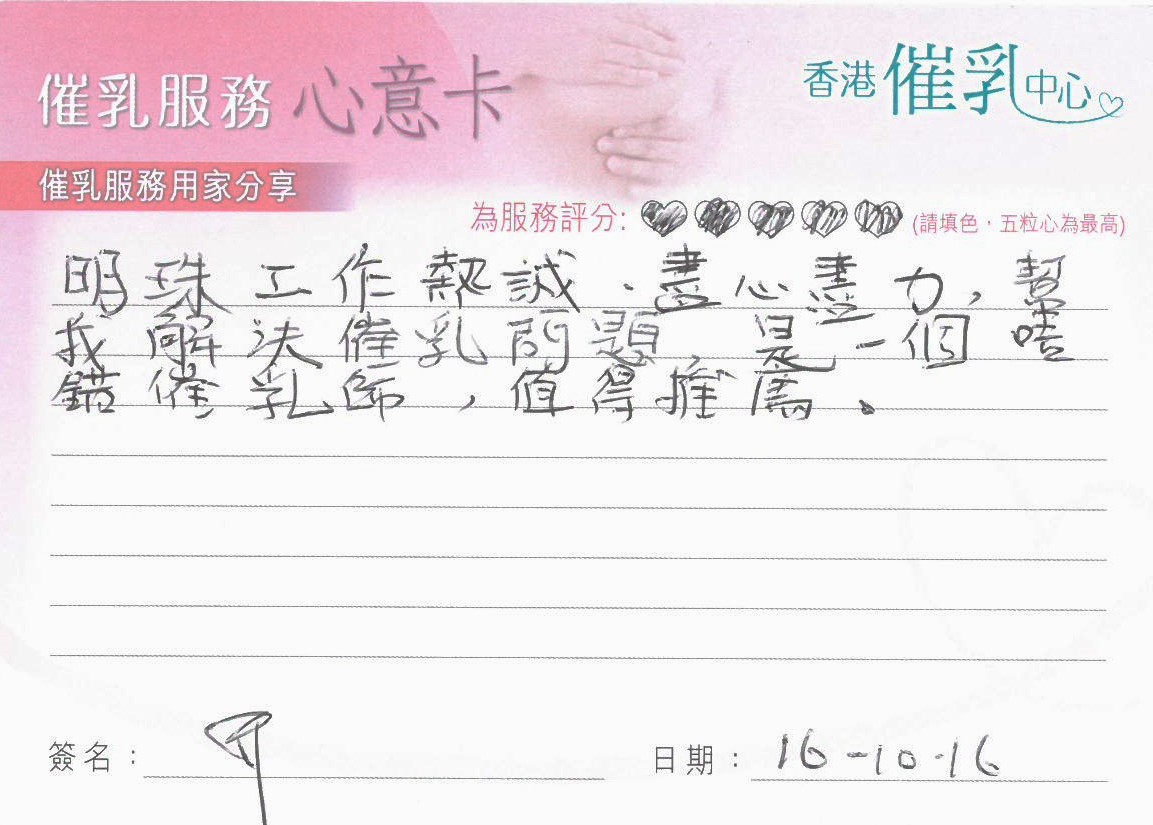 催乳服務 心意卡
香港催乳中心
催乳服務用家分享
為服務評分: (請填色，五粒心為最高)
明珠工作熱誠、盡心盡力，幫
我解決催乳問題，是一個唔
錯催乳師，值得推薦。
簽名：
日期：16-10-16